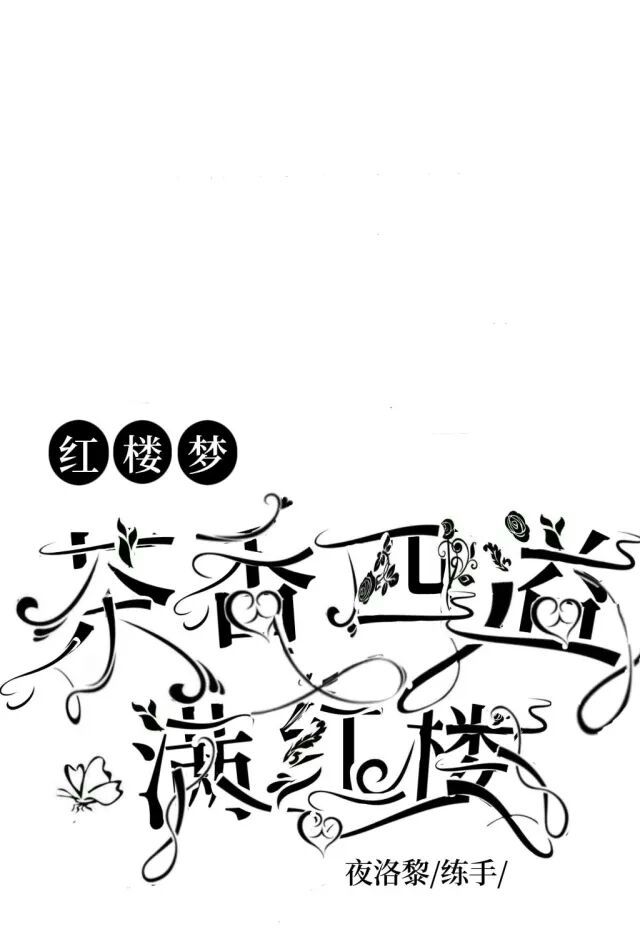 红楼梦
茶香四溢
满红楼
夜洛黎/练手/